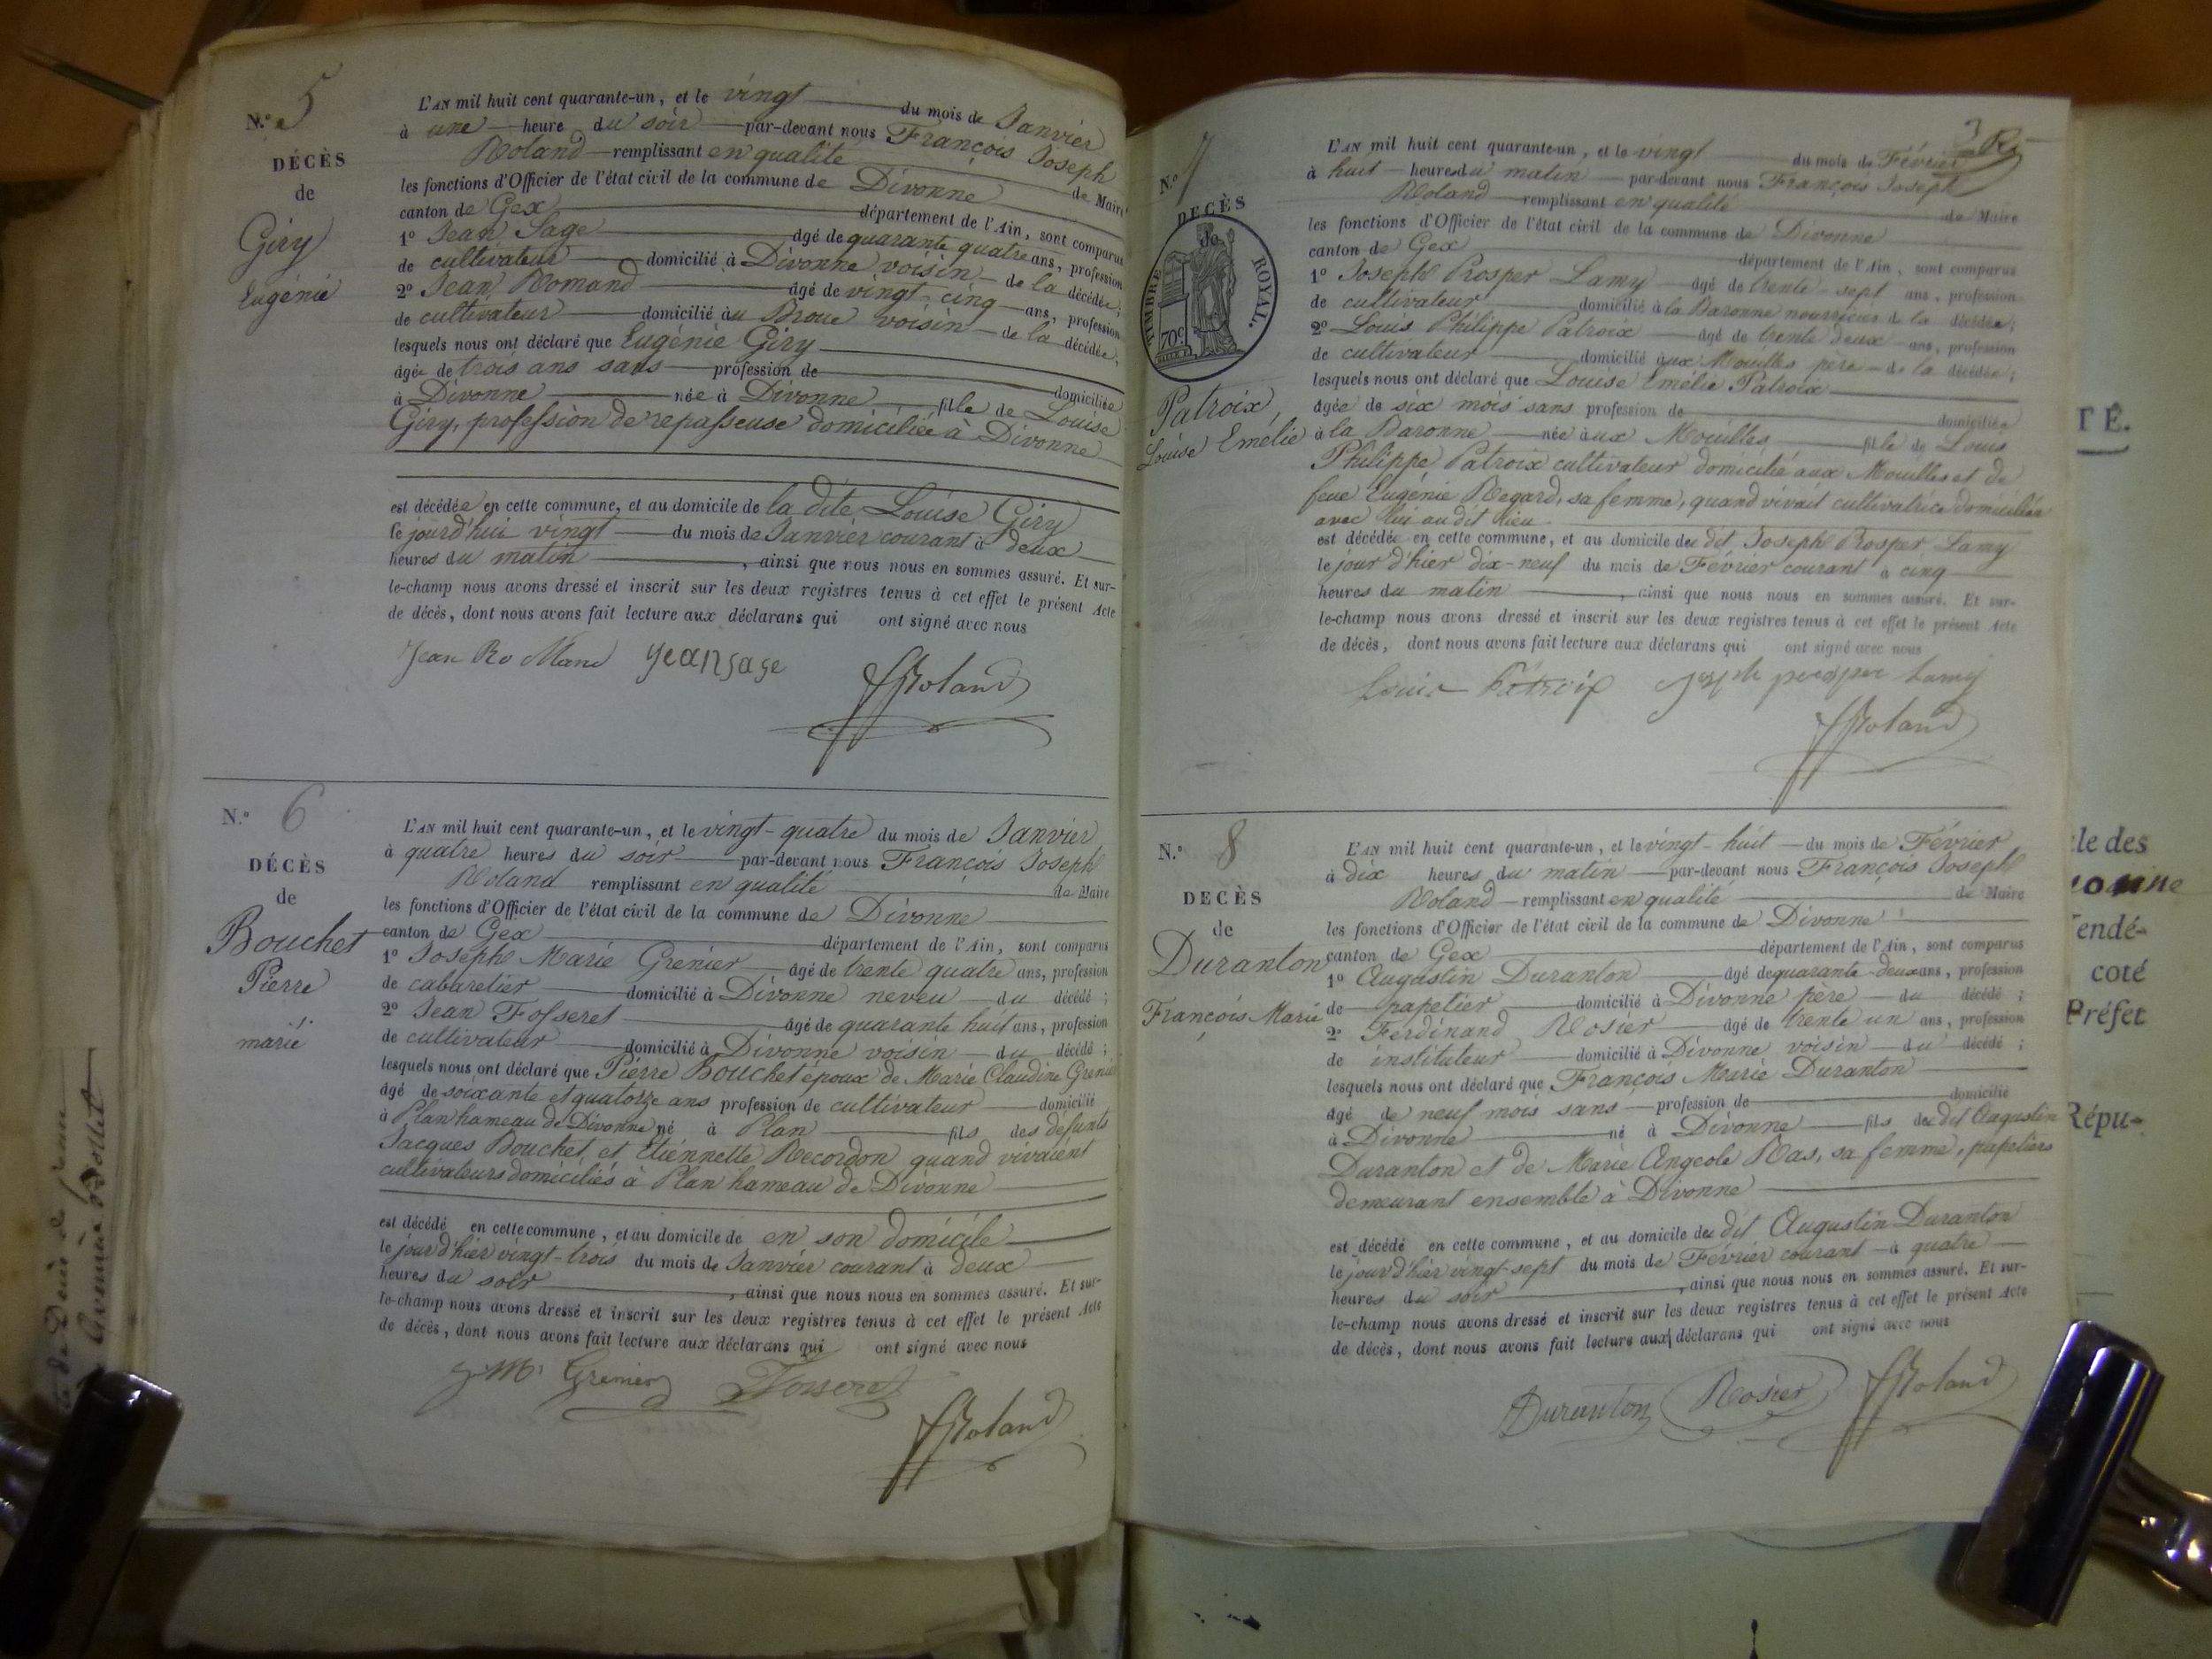 N.° 5
DÉCÈS
de
Giry
Eugénie
L'AN mil huit cent quarante-un, et le vingt du mois de Janvier
à une heure du soir par-devant nous François Joseph
Roland remplissant en qualité de Maire
les fonctions d'Officier de l'état civil de la commune de Divonne
canton de Gex département de l'Ain, sont comparus
1° Jean Sage âgé de quarante quatre ans, profession
de cultivateur domicilié à Divonne voisin de la décédée;
2° Jean Romand âgé de vingt-cinq ans, profession
de cultivateur domicilié au Broue voisin de la décédée,
lesquels nous ont déclaré que Eugénie Giry
âgée de trois ans sans profession de domiciliée
à Divonne née à Divonne fille de Louise
Giry, profession de repasseuse domiciliée à Divonne
est décédée en cette commune, et au domicile de la dite Louise Giry
le jourd'hui vingt du mois de Janvier courant à deux
heures du matin, ainsi que nous nous en sommes assuré. Et sur-
le-champ nous avons dressé et inscrit sur les deux registres tenus à cet effet le présent Acte
de décès, dont nous avons fait lecture aux déclarans qui ont signé avec nous
Jean Ro Mand jeansage
fRoland
N.° 6
DÉCÈS
de
Bouchet
Pierre
marié
L'AN mil huit cent quarante-un, et le vingt-quatre du mois de Janvier
à quatre heures du soir par-devant nous François Joseph
Roland remplissant en qualité de Maire
les fonctions d'Officier de l'état civil de la commune de Divonne
canton de Gex département de l'Ain, sont comparus
1° Joseph Marie Grenier âgé de trente quatre ans, profession
de cabaretier domicilié à Divonne neveu du décédé;
2° Jean Fosseret âgé de quarante huit ans, profession
de cultivateur domicilié à Divonne voisin du décédé;
lesquels nous ont déclaré que Pierre Bouchet époux de Marie Claudine Grenier
âgé de soixante et quatorze ans profession de cultivateur domicilié
à Plan hameau de Divonne né à Plan fils des défunts
Jacques Bouchet et Etiennette Recordon quand vivaient
cultivateurs domiciliés à Plan hameau de Divonne
est décédé en cette commune, et au domicile de en son domicile
le jour d'hier vingt-trois du mois de Janvier courant à deux
heures du soir, ainsi que nous nous en sommes assuré. Et sur-
le-champ nous avons dressé et inscrit sur les deux registres tenus à cet effet le présent Acte
de décès, dont nous avons fait lecture aux déclarans qui ont signé avec nous
J M Grenier Fosseret
fRoland
N.° 7
DECÈS
de
TIMBRE ROYAL.
70c
Patroix,
Louise Emélie
3
L'AN mil huit cent quarante-un, et le vingt du mois de Février
à huit heures du matin par-devant nous François Joseph
Roland remplissant en qualité de Maire
les fonctions d'Officier de l'état civil de la commune de Divonne
canton de Gex département de l'Ain, sont comparus
1° Joseph Prosper Lamy âgé de trente-sept ans, profession
de cultivateur domicilié à la Baronne nourricier de la décédée;
2° Louis Philippe Patroix âgé de trente deux ans, profession
de cultivateur domicilié aux Mouilles père de la décédée;
lesquels nous ont déclaré que Louise Emélie Patroix
âgée de six mois sans profession de domiciliée
à la Baronne née aux Mouilles fille de Louis
Philippe Patroix cultivateur domicilié aux Mouilles et de
feue Eugénie Regard, sa femme, quand vivait cultivatrice domiciliée
avec lui au dit lieu
est décédée en cette commune, et au domicile de dit Joseph Prosper Lamy
le jour d'hier dix-neuf du mois de Février courant à cinq
heures du matin, ainsi que nous nous en sommes assuré. Et sur-
le-champ nous avons dressé et inscrit sur les deux registres tenus à cet effet le présent Acte
de décès, dont nous avons fait lecture aux déclarans qui ont signé avec nous
Louis Patroix Joseph prosper Lamy
fRoland
N.° 8
DECÈS
de
Duranton
François Marie
L'AN mil huit cent quarante-un, et le vingt-huit du mois de Février
à dix heures du matin par-devant nous François Joseph
Roland remplissant en qualité de Maire
les fonctions d'Officier de l'état civil de la commune de Divonne
canton de Gex département de l'Ain, sont comparus
1° Augustin Duranton âgé de quarante-deux ans, profession
de papetier domicilié à Divonne père du décédé;
2° Ferdinand Rosier âgé de trente un ans, profession
de instituteur domicilié à Divonne voisin du décédé;
lesquels nous ont déclaré que François Marie Duranton
âgé de neuf mois sans profession de domicilié
à Divonne né à Divonne fils de dit Augustin
Duranton et de Marie Angeole Ras, sa femme, papetiers
demeurant ensemble à Divonne
est décédé en cette commune, et au domicile de dit Augustin Duranton
le jour d'hier vingt-sept du mois de Février courant à quatre
heures du soir, ainsi que nous nous en sommes assuré. Et sur-
le-champ nous avons dressé et inscrit sur les deux registres tenus à cet effet le présent Acte
de décès, dont nous avons fait lecture aux déclarans qui ont signé avec nous
Duranton Rosier fRoland
TÉ.
le des
onne
endé-
coté
Préfet
Répu-